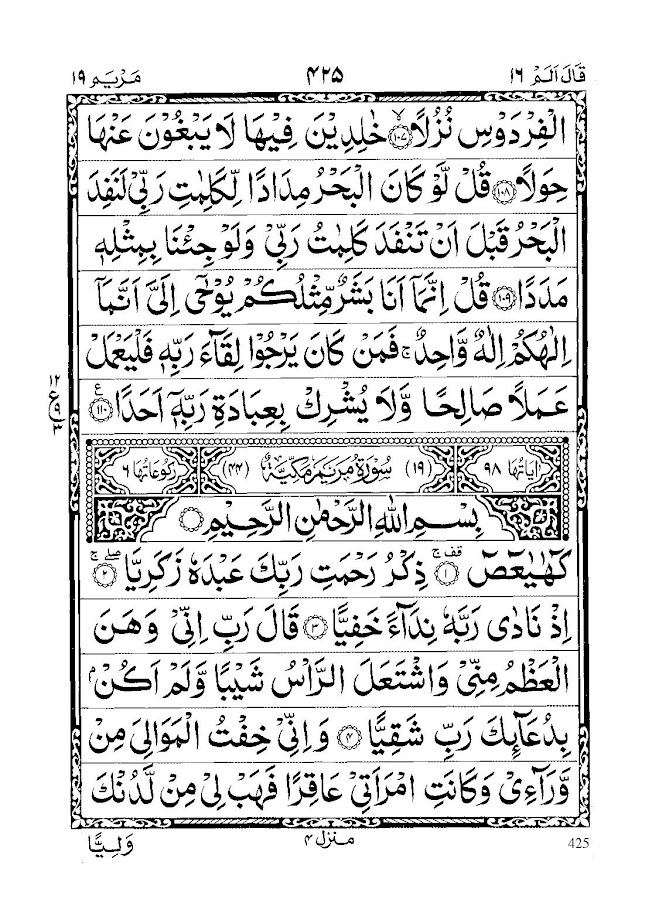 قَالَ اَلَمْ ١٦ ۴۲۵ مَرْيَم ١٩
الْفِرْدَوْسِ نُزُلًا ﴿١٠٧﴾ خٰلِدِيْنَ فِيْهَا لَا يَبْغُوْنَ عَنْهَا
حِوَلًا ﴿١٠٨﴾ قُلْ لَّوْ كَانَ الْبَحْرُ مِدَادًا لِّكَلِمٰتِ رَبِّيْ لَنَفِدَ
الْبَحْرُ قَبْلَ اَنْ تَنْفَدَ كَلِمٰتُ رَبِّيْ وَلَوْ جِئْنَا بِمِثْلِهٖ
مَدَدًا ﴿١٠٩﴾ قُلْ اِنَّمَاۤ اَنَا بَشَرٌ مِّثْلُكُمْ يُوْحٰۤى اِلَيَّ اَنَّمَاۤ
اِلٰهُكُمْ اِلٰهٌ وَّاحِدٌ ۚ فَمَنْ كَانَ يَرْجُوْا لِقَآءَ رَبِّهٖ فَلْيَعْمَلْ
عَمَلًا صَالِحًا وَّلَا يُشْرِكْ بِعِبَادَةِ رَبِّهٖۤ اَحَدًا ﴿١١٠﴾
١٢ ع ٩ ٣
اٰيَاتُهَا ٩٨ (١٩) سُوْرَةُ مَرْيَمَ مَكِّيَّةٌ (۴۴) رُكُوْعَاتُهَا ٦
بِسْمِ اللّٰهِ الرَّحْمٰنِ الرَّحِيْمِ
كٓهٰيٰعٓصٓ ﴿١﴾ ذِكْرُ رَحْمَتِ رَبِّكَ عَبْدَهٗ زَكَرِيَّا ﴿٢﴾
اِذْ نَادٰى رَبَّهٗ نِدَآءً خَفِيًّا ﴿٣﴾ قَالَ رَبِّ اِنِّيْ وَهَنَ
الْعَظْمُ مِنِّيْ وَاشْتَعَلَ الرَّاْسُ شَيْبًا وَّلَمْ اَكُنْۢ
بِدُعَآئِكَ رَبِّ شَقِيًّا ﴿۴﴾ وَاِنِّيْ خِفْتُ الْمَوَالِيَ مِنْ
وَّرَآءِيْ وَكَانَتِ امْرَاَتِيْ عَاقِرًا فَهَبْ لِيْ مِنْ لَّدُنْكَ
وَلِيًّا
منزل ۴
425